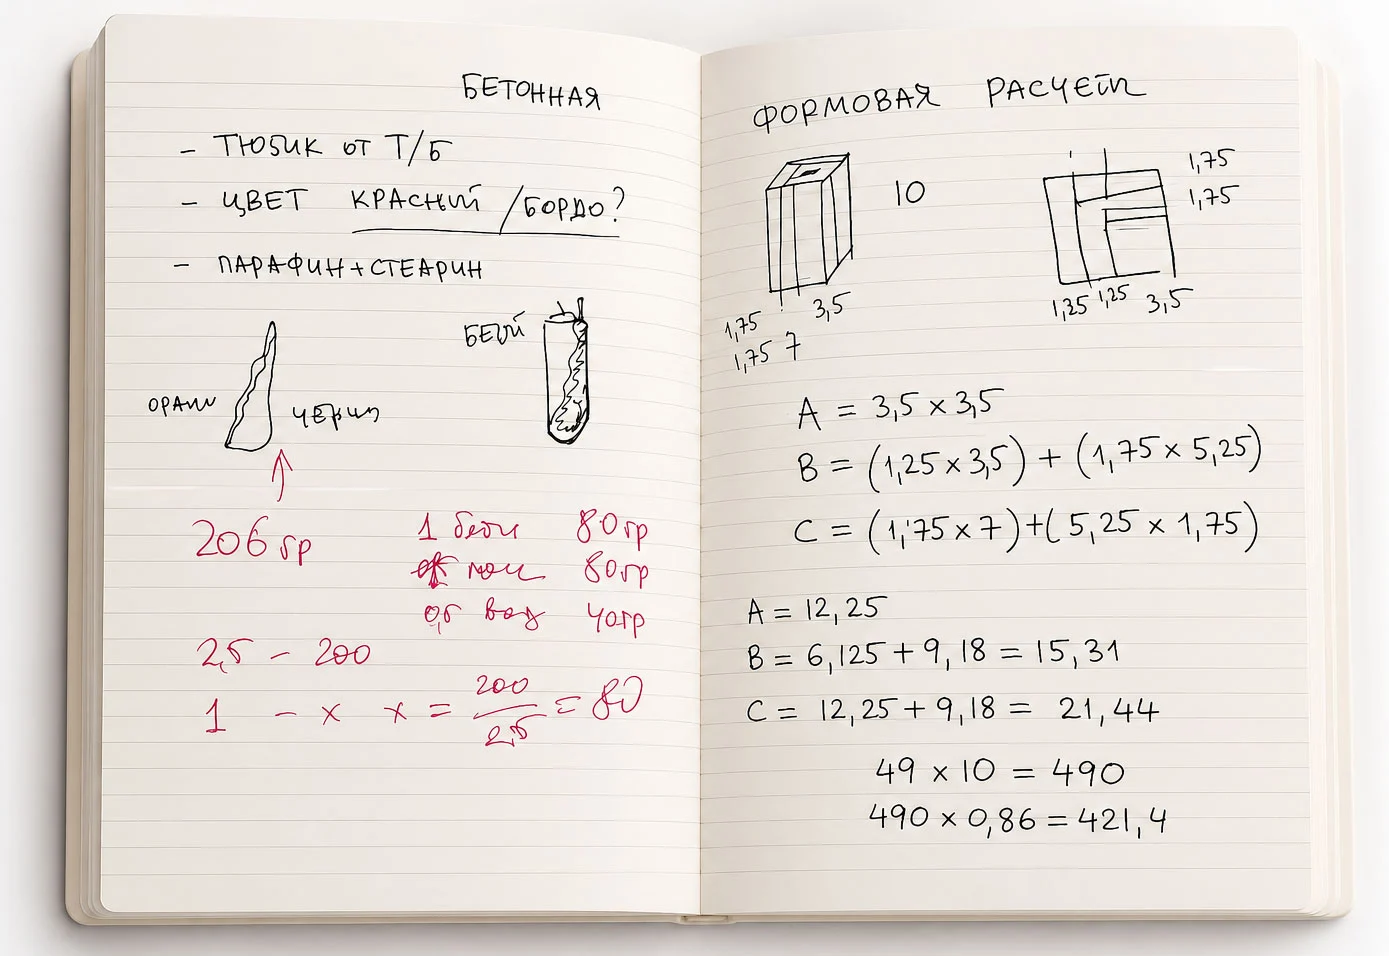 БЕТОННАЯ
- ТЮБИК ОТ Т/Б
- ЦВЕТ КРАСНЫЙ /БОРДО?
- ПАРАФИН+СТЕАРИН
206 гр
1 80гр
80гр
0,5 40гр
2,5 - 200
1 - x x = 200/2,5 = 80
ФОРМОВАЯ РАСЧЁТ
10
1,75
1,75 7
3,5
1,75
1,75
1,25 1,25 3,5
A = 3,5 × 3,5
B = (1,25 × 3,5) + (1,75 × 5,25)
C = (1,75 × 7)+(5,25 × 1,75)
A = 12,25
B = 6,125 + 9,18 = 15,31
C = 12,25 + 9,18 = 21,44
49 × 10 = 490
490 × 0,86 = 421,4